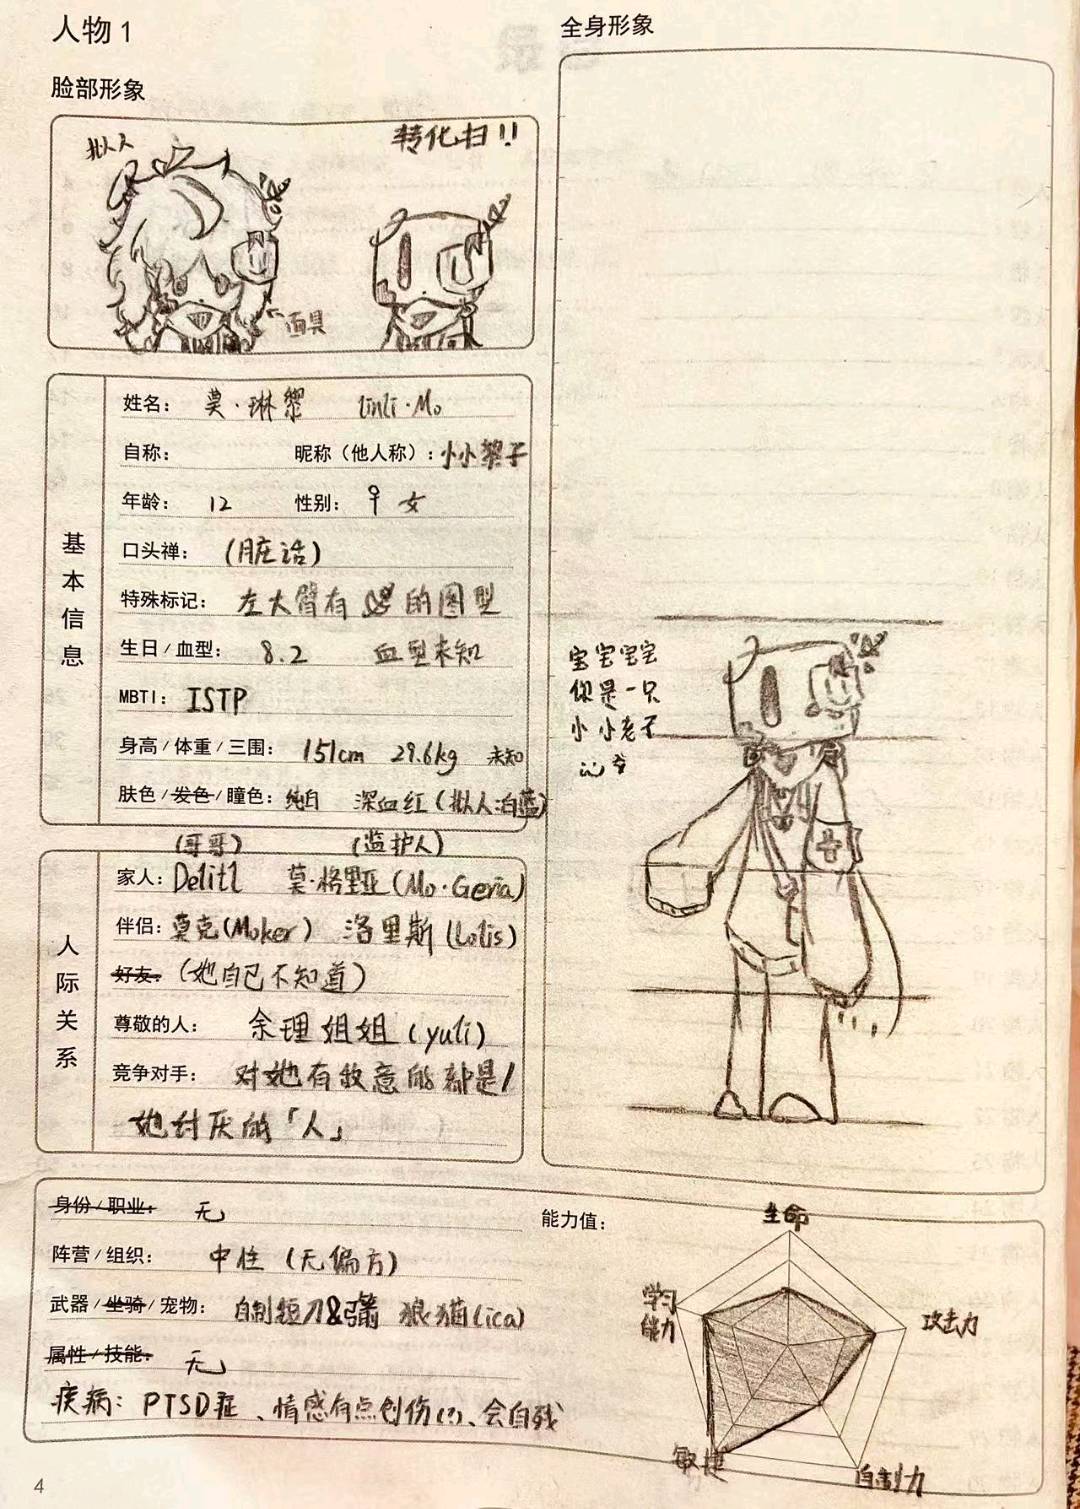 人物 1
脸部形象
拟人
转化扫!!
面具
基本信息
姓名: 莫·琳黎 linli·Mo
自称: 昵称（他人称）: 小小黎子
年龄: 12 性别: ♀ 女
口头禅: (脏话)
特殊标记: 左大臂有 的图型
生日 / 血型: 8.2 血型未知
MBTI: ISTP
身高 / 体重 / 三围: 151cm 29.6kg 未知
肤色 / 发色 / 瞳色: 纯白 深血红(拟人:白蓝)
(哥哥) (监护人)
人际关系
家人: Delitl 莫·格里亚(Mo·Geria)
伴侣: 莫克(Moker) 洛里斯(Lolis)
好友: (她自己不知道)
尊敬的人: 余理姐姐(yuli)
竞争对手: 对她有敌意的都是/
她讨厌的「人」
全身形象
宝宝宝宝
你是一只
小小老子
身份 / 职业: 无
阵营 / 组织: 中性 (无偏方)
武器 / 坐骑 / 宠物: 自制短刀&弓箭 狼猫(ica)
属性 / 技能: 无
疾病: PTSD症、情感有点创伤(?)、会自残
能力值:
生命
学习能力
攻击力
敏捷
自制力
4